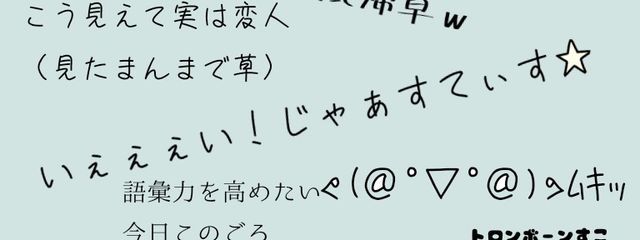 こう見えて実は変人
草w
(見たまんまで草)
いぇぇぇい!じゃぁすてぃす☆
語彙力を高めたい
ᕙ(@°▽°@)ᕗムキッ
今日このごろ
トロンボーンすこ